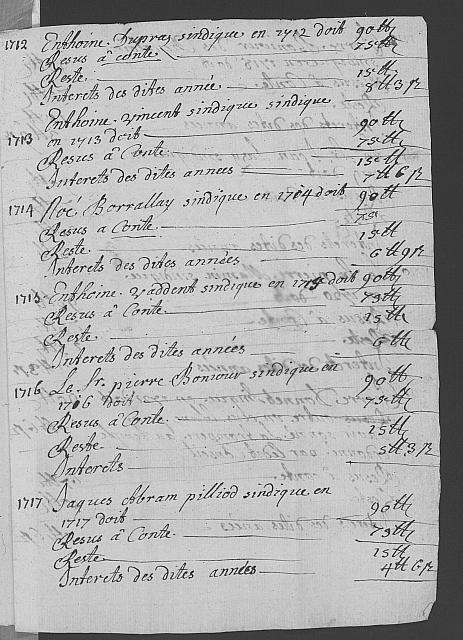 1712 Enthoine Dupras sindique en 1712 doit 90 tt
Resus â conte 75 tt
Reste 15 tt
Interets des dites année 8 tt 3 ß
1713 Enthoine Vincent sindique sindique
en 1713 doit 90 tt
Resus â Conte 75 tt
Reste 15 tt
Interets des dites annees 7 tt 6 ß
1714 Noé Borrallay sindique en 1714 doit 90 tt
Resus a Conte 75
Reste 15 tt
Interets des dites années 6 tt 9 ß
1715 Enthoine Vaddent sindique en 1715 doit 90 tt
Resus â Conte 75 tt
Reste 15 tt
Interets des dites années 6 tt
1716 Le Sr. pierre Bonjour sindique en
1716 doit 90 tt
Resus â Conte 75 tt
Reste 15 tt
Interets 5 tt 3 ß
1717 Jaques Abram pilliod sindique en
1717 doit 90 tt
Resus â Conte 75 tt
Reste 15 tt
Interets des dites années 4 tt 6 ß